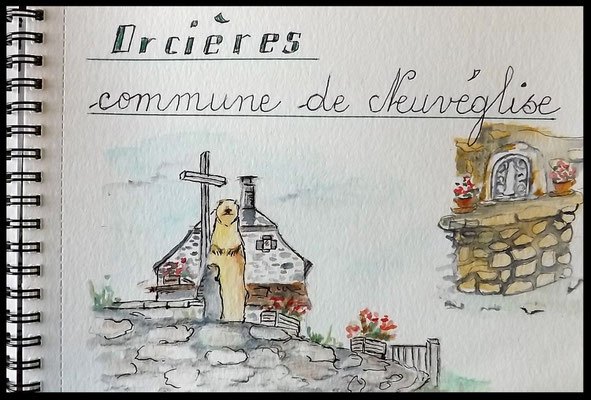 Orcières
commune de Neuvéglise